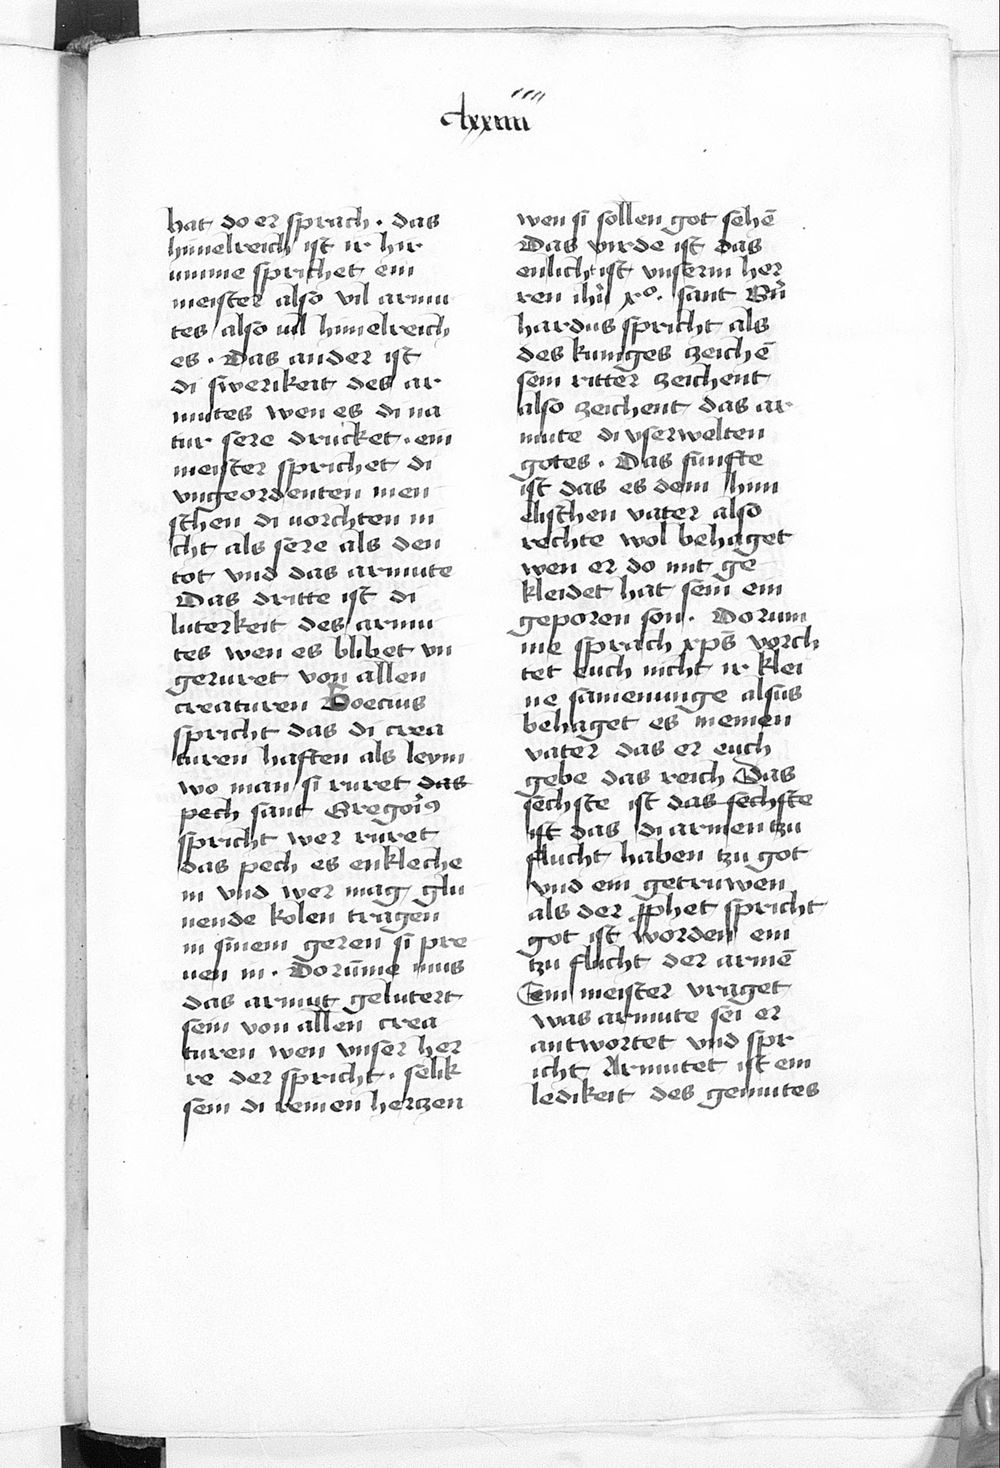 clxxiiii
hat do er sprach · das
himelreich ist ir hir
umme sprichet ein
meister also vil armu
tes also uil himelreich
es · Das ander ist
di swerikeit des ar
mutes wen es di na
tur sere drucket · ein
meister sprichet di
vngeordenten men
schen di uorchten ni
cht als sere als den
tot vnd das armute
Das dritte ist di
luterkeit des armu
tes wen es blibet vn
geruret von allen
creaturen Boecius
spricht das di crea
turen haften als leym
wo man si ruret das
pech sant Gregoiꝰ
spricht wer ruret
das pech es enkleche
in vnd wer mag glu
nende kolen tragen
in sinem geren si pre
nen in · Dorūme mus
das armut gelutert
sein von allen crea
turen wen vnser her
re der spricht · selik
sein di reinen herczen
wen si sollen got sehē
Das virde ist das
enlich ist vnserm her
ren ihū xo. sant Bn̄
hardus spricht als
des kuniges zeichē
sein ritter zeichent
also zeichent das ar
mute di vserwelten
gotes · Das funfte
ist das es dem him
elischen vater also
rechte wol behaget
wen er do mit ge
kleidet hat sein ein
geporen son · Dorum
me sprach xp̄s vorch
tet euch nicht ir klei
ne samenunge alsus
behaget es meinen
vater das er euch
gebe das reich Das
sechste ist das sechste
ist das di armen tzu
flucht haben tzu got
vnd ein getruwen
als der ꝓphet spricht
got ist worden ein
tzu flucht der armē
Ein meister vraget
was armute sei er
antwortet vnd spr
icht Armutet ist ein
ledikeit des gemutes